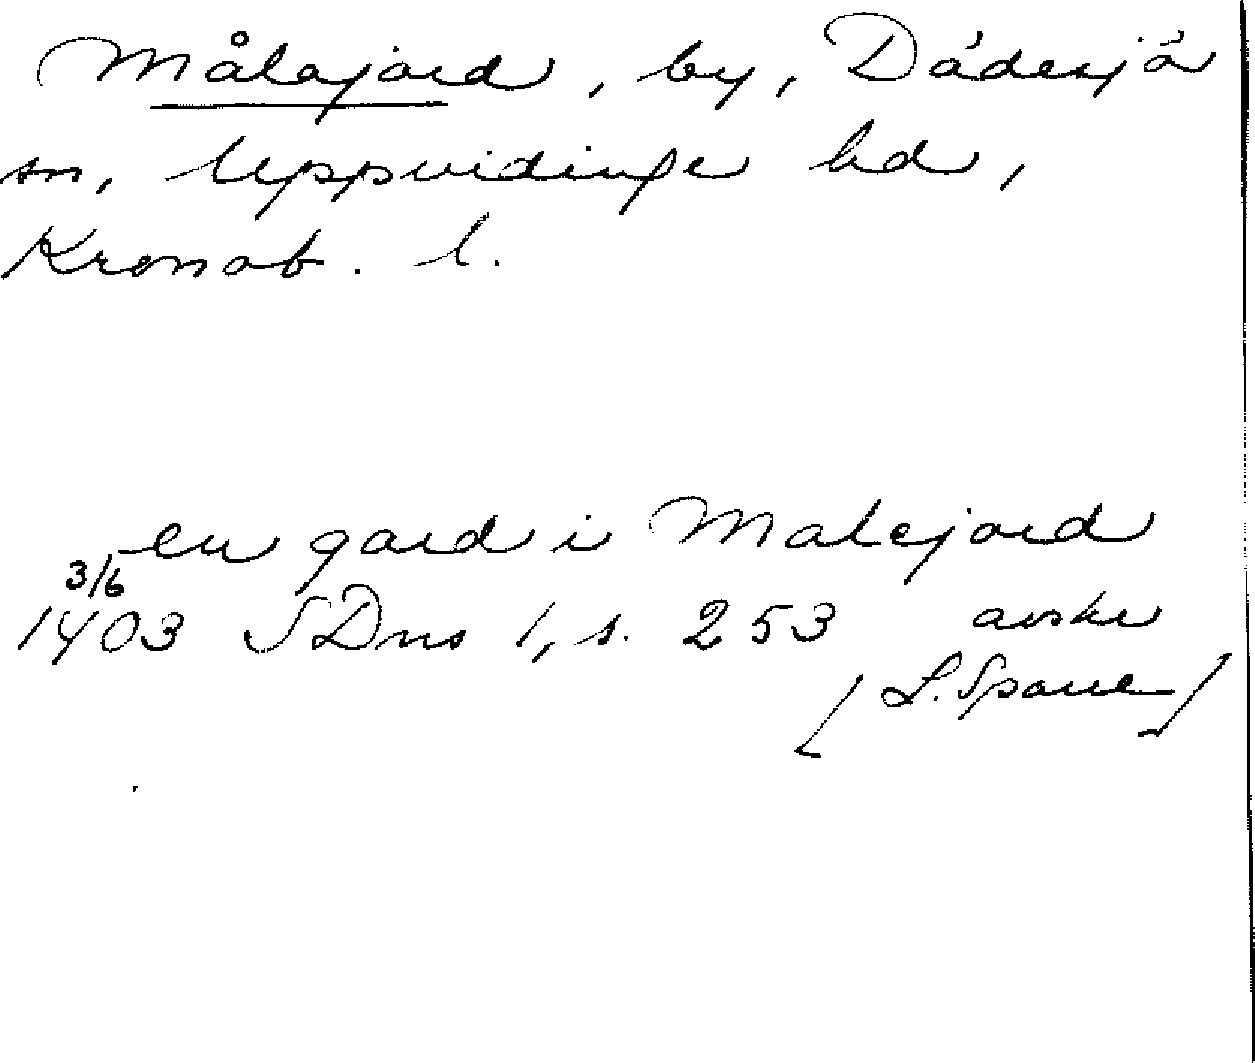 Målajord, by, Dädesjö
sn, Uppvidinge hd,
Kronob. l.
en gard i Malejord
3/6
1403 SDns 1, s. 253 avskr
[L. Sparre]